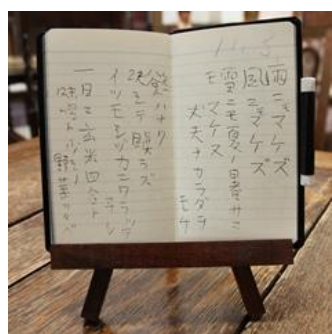 11.3.
雨ニモマケズ
風ニモマケズ
雪ニモ夏ノ暑サニ
モ マケヌ
丈夫ナカラダヲ
モチ
慾ハナク
決シテ瞋ラズ
イツモシヅカニワラッテ
ヰル
一日ニ玄米四合ト
味噌ト少シノ野菜ヲタベ